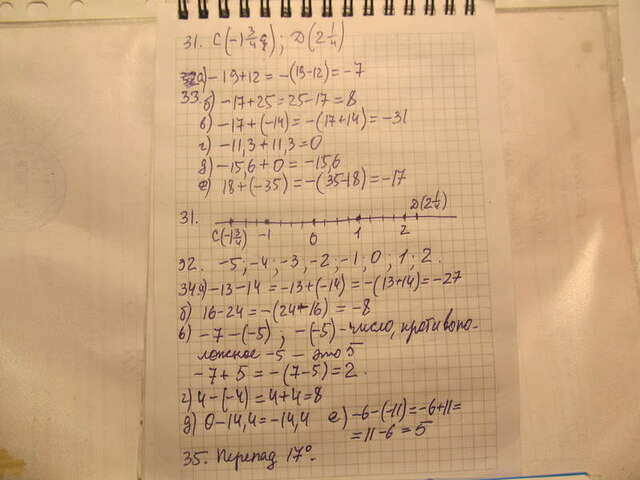 31. C(-1 3/4); D(2 1/4)
а) -19+12 = -(19-12) = -7
33. б) -17+25 = 25-17 = 8
в) -17+(-14) = -(17+14) = -31
г) -11,3+11,3 = 0
д) -15,6+0 = -15,6
е) 18+(-35) = -(35-18) = -17
31. D(2 1/4)
C(-1 3/4) -1 0 1 2
32. -5; -4; -3; -2; -1; 0; 1; 2.
34а) -13-14 = -13+(-14) = -(13+14) = -27
б) 16-24 = -(24-16) = -8
в) -7-(-5); -(-5) - число, противопо-
ложное -5 - это 5
-7+5 = -(7-5) = 2.
г) 4-(-4) = 4+4 = 8
д) 0-14,4 = -14,4 е) -6-(-11) = -6+11 =
= 11-6 = 5
35. Перепад 17°.